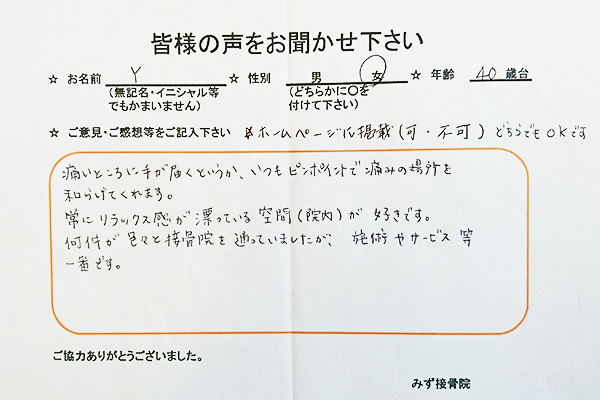 皆様の声をお聞かせ下さい
☆ お名前 Y ☆ 性別 男 女 ☆ 年齢 40 歳台
(無記名・イニシャル等でもかまいません) (どちらかに〇を付けて下さい)
☆ ご意見・ご感想等をご記入下さい ※ホームページに掲載(可・不可) どちらでもOKです
痛いところに手が届くというか、いつもピンポイントで痛みの場所を
和らげてくれます。
常にリラックス感が漂っている空間(院内)が好きです。
何件か色々と接骨院を通っていましたが、施術やサービス等
一番です。
ご協力ありがとうございました。
みず接骨院